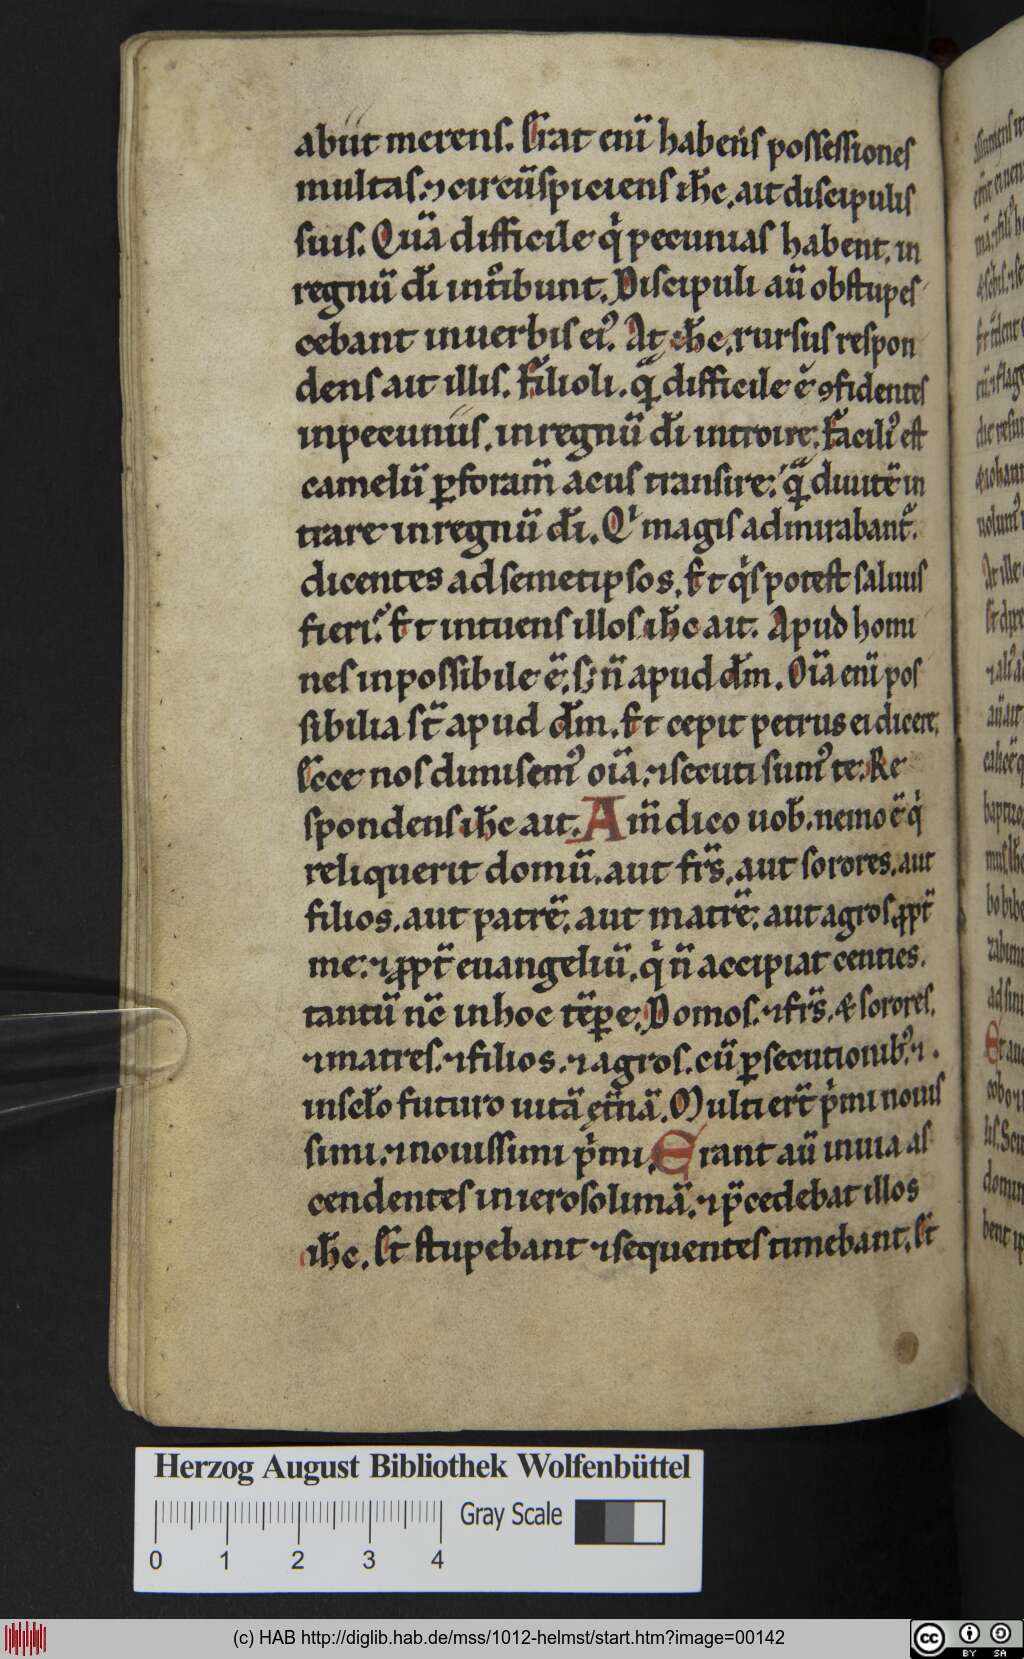 abiit merens. Erat enī habens possessiones
multas. ⁊ circūspiciens ih̄c. ait discipulis
suis. Quā difficile qͥ pecunias habent. in
regnū dī intͦibunt. Discipuli aū obstupes
cebant in uerbis eiꝰ. At ih̄c. rursus respon
dens ait illis. Filioli. qͣ̄ difficile ē ꝯfidentes
in pecuniis. in regnū dī introire. Faciliꝰ est
camelū ꝑ foram̄ acus transire. qͣ̄ diuitē in
trare in regnū dī. Qͥ magis admirabantͬ.
dicentes ad semetipsos. Et qͥs potest saluus
fieri? Et intuens illos ih̄c ait. Apud homi
nes inpossibile ē. sꝫ n̄ apud dm̄. Oīa enī pos
sibilia st̄ apud dm̄. Et cepit petrus ei dicere.
Ecce nos dimisimꝰ oīa. ⁊ secuti sumꝰ te. Re
spondens ih̄c ait. Am̄ dico uob̄. nemo ē qͥ
reliquerit domū. aut frs̄. aut sorores. aut
filios. aut patrē. aut matrē. aut agros ꝓpt̄
me. ⁊ ꝓpt̄ euangeliū. qͥ n̄ accipiat centies.
tantū nc̄ in hoc tēꝑe. Domos. ⁊ frs̄. & sorores.
⁊ matres. ⁊ filios. ⁊ agros. cū ꝑsecutionibꝰ. ⁊ .
in sclō futuro uitā et̄nā. Multi ert̄ pͥmi nouis
simi. ⁊ nouissimi pͥmi. Erant aū in uia as
cendentes in ierosolimā. ⁊ p̄cedebat illos
ih̄c. Et stupebant ⁊ sequentes timebant. Et
Herzog August Bibliothek Wolfenbüttel
Gray Scale
0 1 2 3 4
(c) HAB http://diglib.hab.de/mss/1012-helmst/start.htm?image=00142
cc BY SA